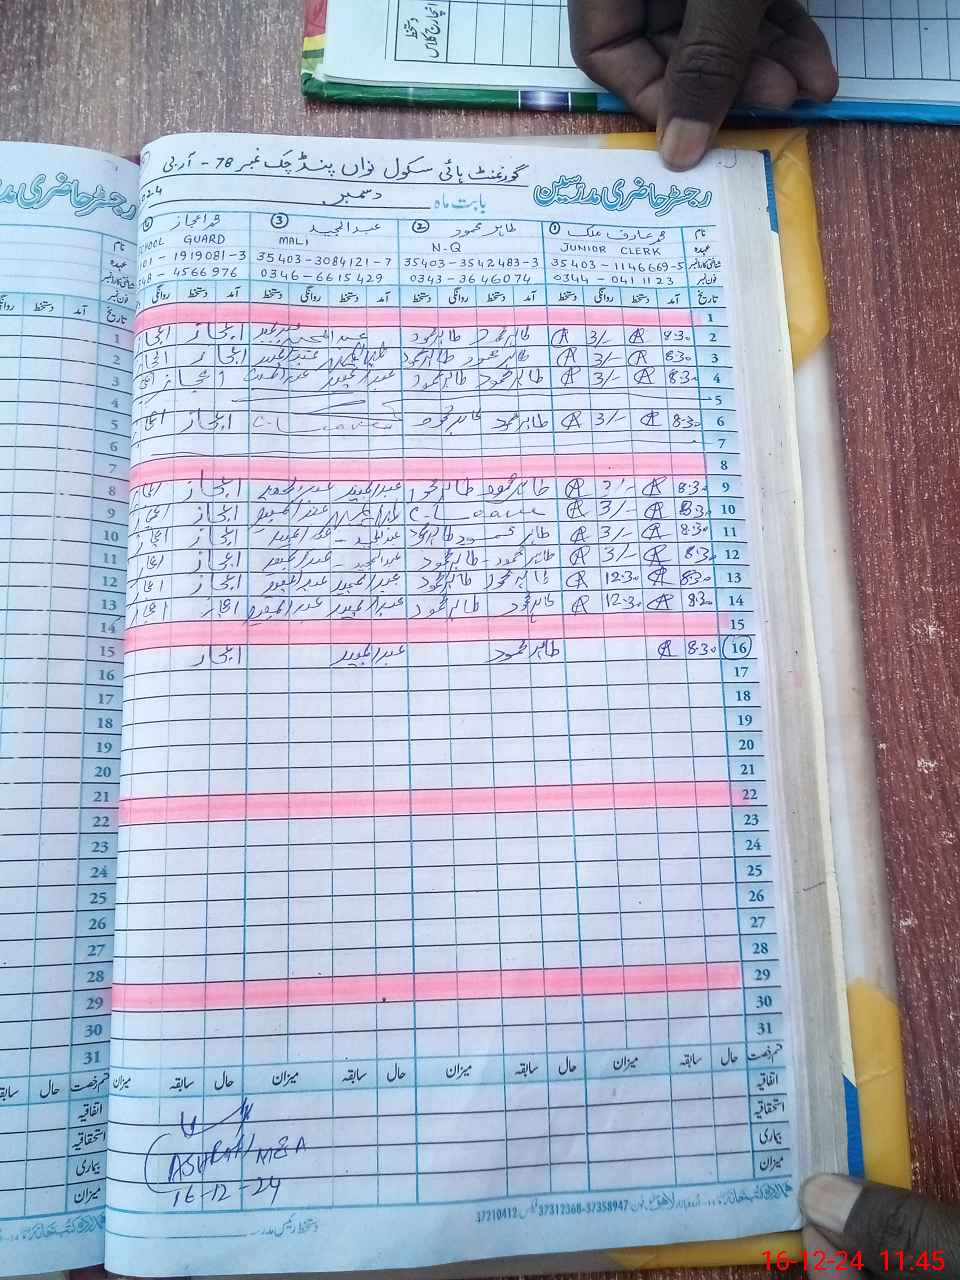 دستخط
انچارج کلاس
گورنمنٹ ہائی سکول نواں پنڈ چک نمبر 78 - آر بی
رجسٹر حاضری مدرسین
بابت ماہ دسمبر 2024
نام ① محمد عارف ملک ② طاہر محمود ③ عبدالمجید ④ محمد اعجاز
عہدہ JUNIOR CLERK N-Q MALI SCHOOL GUARD
شناختی کارڈ نمبر 35403-1146669-5 35403-3542483-3 35403-3084121-7 101-1919081-3
فون نمبر 0344-0411123 0343-3646074 0346-6615429 348-4566976
تاریخ آمد دستخط روانگی دستخط آمد دستخط روانگی دستخط آمد دستخط روانگی دستخط آمد دستخط روانگی
1
2 8:30 3/- طاہر محمود طاہر محمود عبدالمجید اعجاز
3 8:30 3/- طاہر محمود طاہر محمود عبدالمجید اعجاز
4 8:30 3/- طاہر محمود طاہر محمود عبدالمجید عبدالمجید اعجاز
5
6 8:30 3/- طاہر محمود طاہر محمود C.Leave اعجاز
7
8
9 8:30 3/- طاہر محمود طاہر محمود عبدالمجید عبدالمجید اعجاز
10 8:30 3/- C.Leave عبدالمجید اعجاز
11 8:30 3/- طاہر محمود طاہر محمود عبدالمجید عبدالمجید اعجاز
12 8:30 3/- طاہر محمود طاہر محمود عبدالمجید عبدالمجید اعجاز
13 8:30 12:30 طاہر محمود طاہر محمود عبدالمجید عبدالمجید اعجاز
14 8:30 12:30 طاہر محمود طاہر محمود عبدالمجید عبدالمجید اعجاز
15
16 8:30 طاہر محمود عبدالمجید اعجاز
17
18
19
20
21
22
23
24
25
26
27
28
29
30
31
قسم رخصت حال سابقہ میزان حال سابقہ میزان حال سابقہ میزان حال سابقہ میزان
اتفاقیہ
استحقاقیہ
بیماری
میزان
ASHRAF MEA
16-12-24
دستخط رئیس مدرسہ
37210412 37312368-37358947
رجسٹر حاضری مدر
تاریخ آمد دستخط روانگی
1
2
3
4
5
6
7
8
9
10
11
12
13
14
15
16
17
18
19
20
21
22
23
24
25
26
27
28
29
30
31
قسم رخصت حال سابقہ
اتفاقیہ
استحقاقیہ
بیماری
میزان
16-12-24 11:45